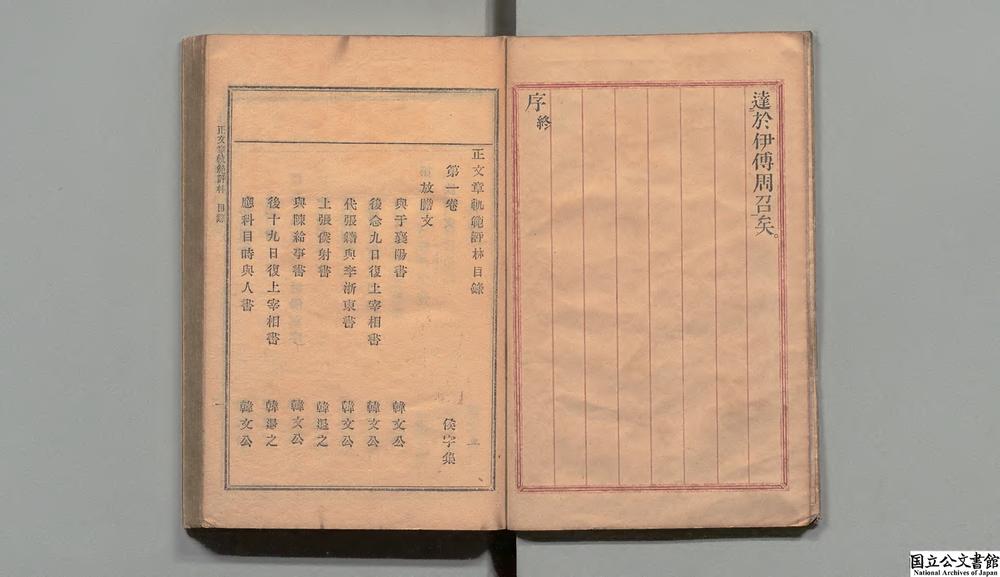 達於伊傅周召矣。
序終
正文章軌範評林目錄
第一卷 侯字集
放膽文
與于襄陽書 韓文公
後念九日復上宰相書 韓文公
代張籍與李浙東書 韓文公
上張僕射書 韓退之
與陳給事書 韓文公
後十九日復上宰相書 韓退之
應科目時與人書 韓文公
正文章軌範評林 目錄
国立公文書館
National Archives of Japan